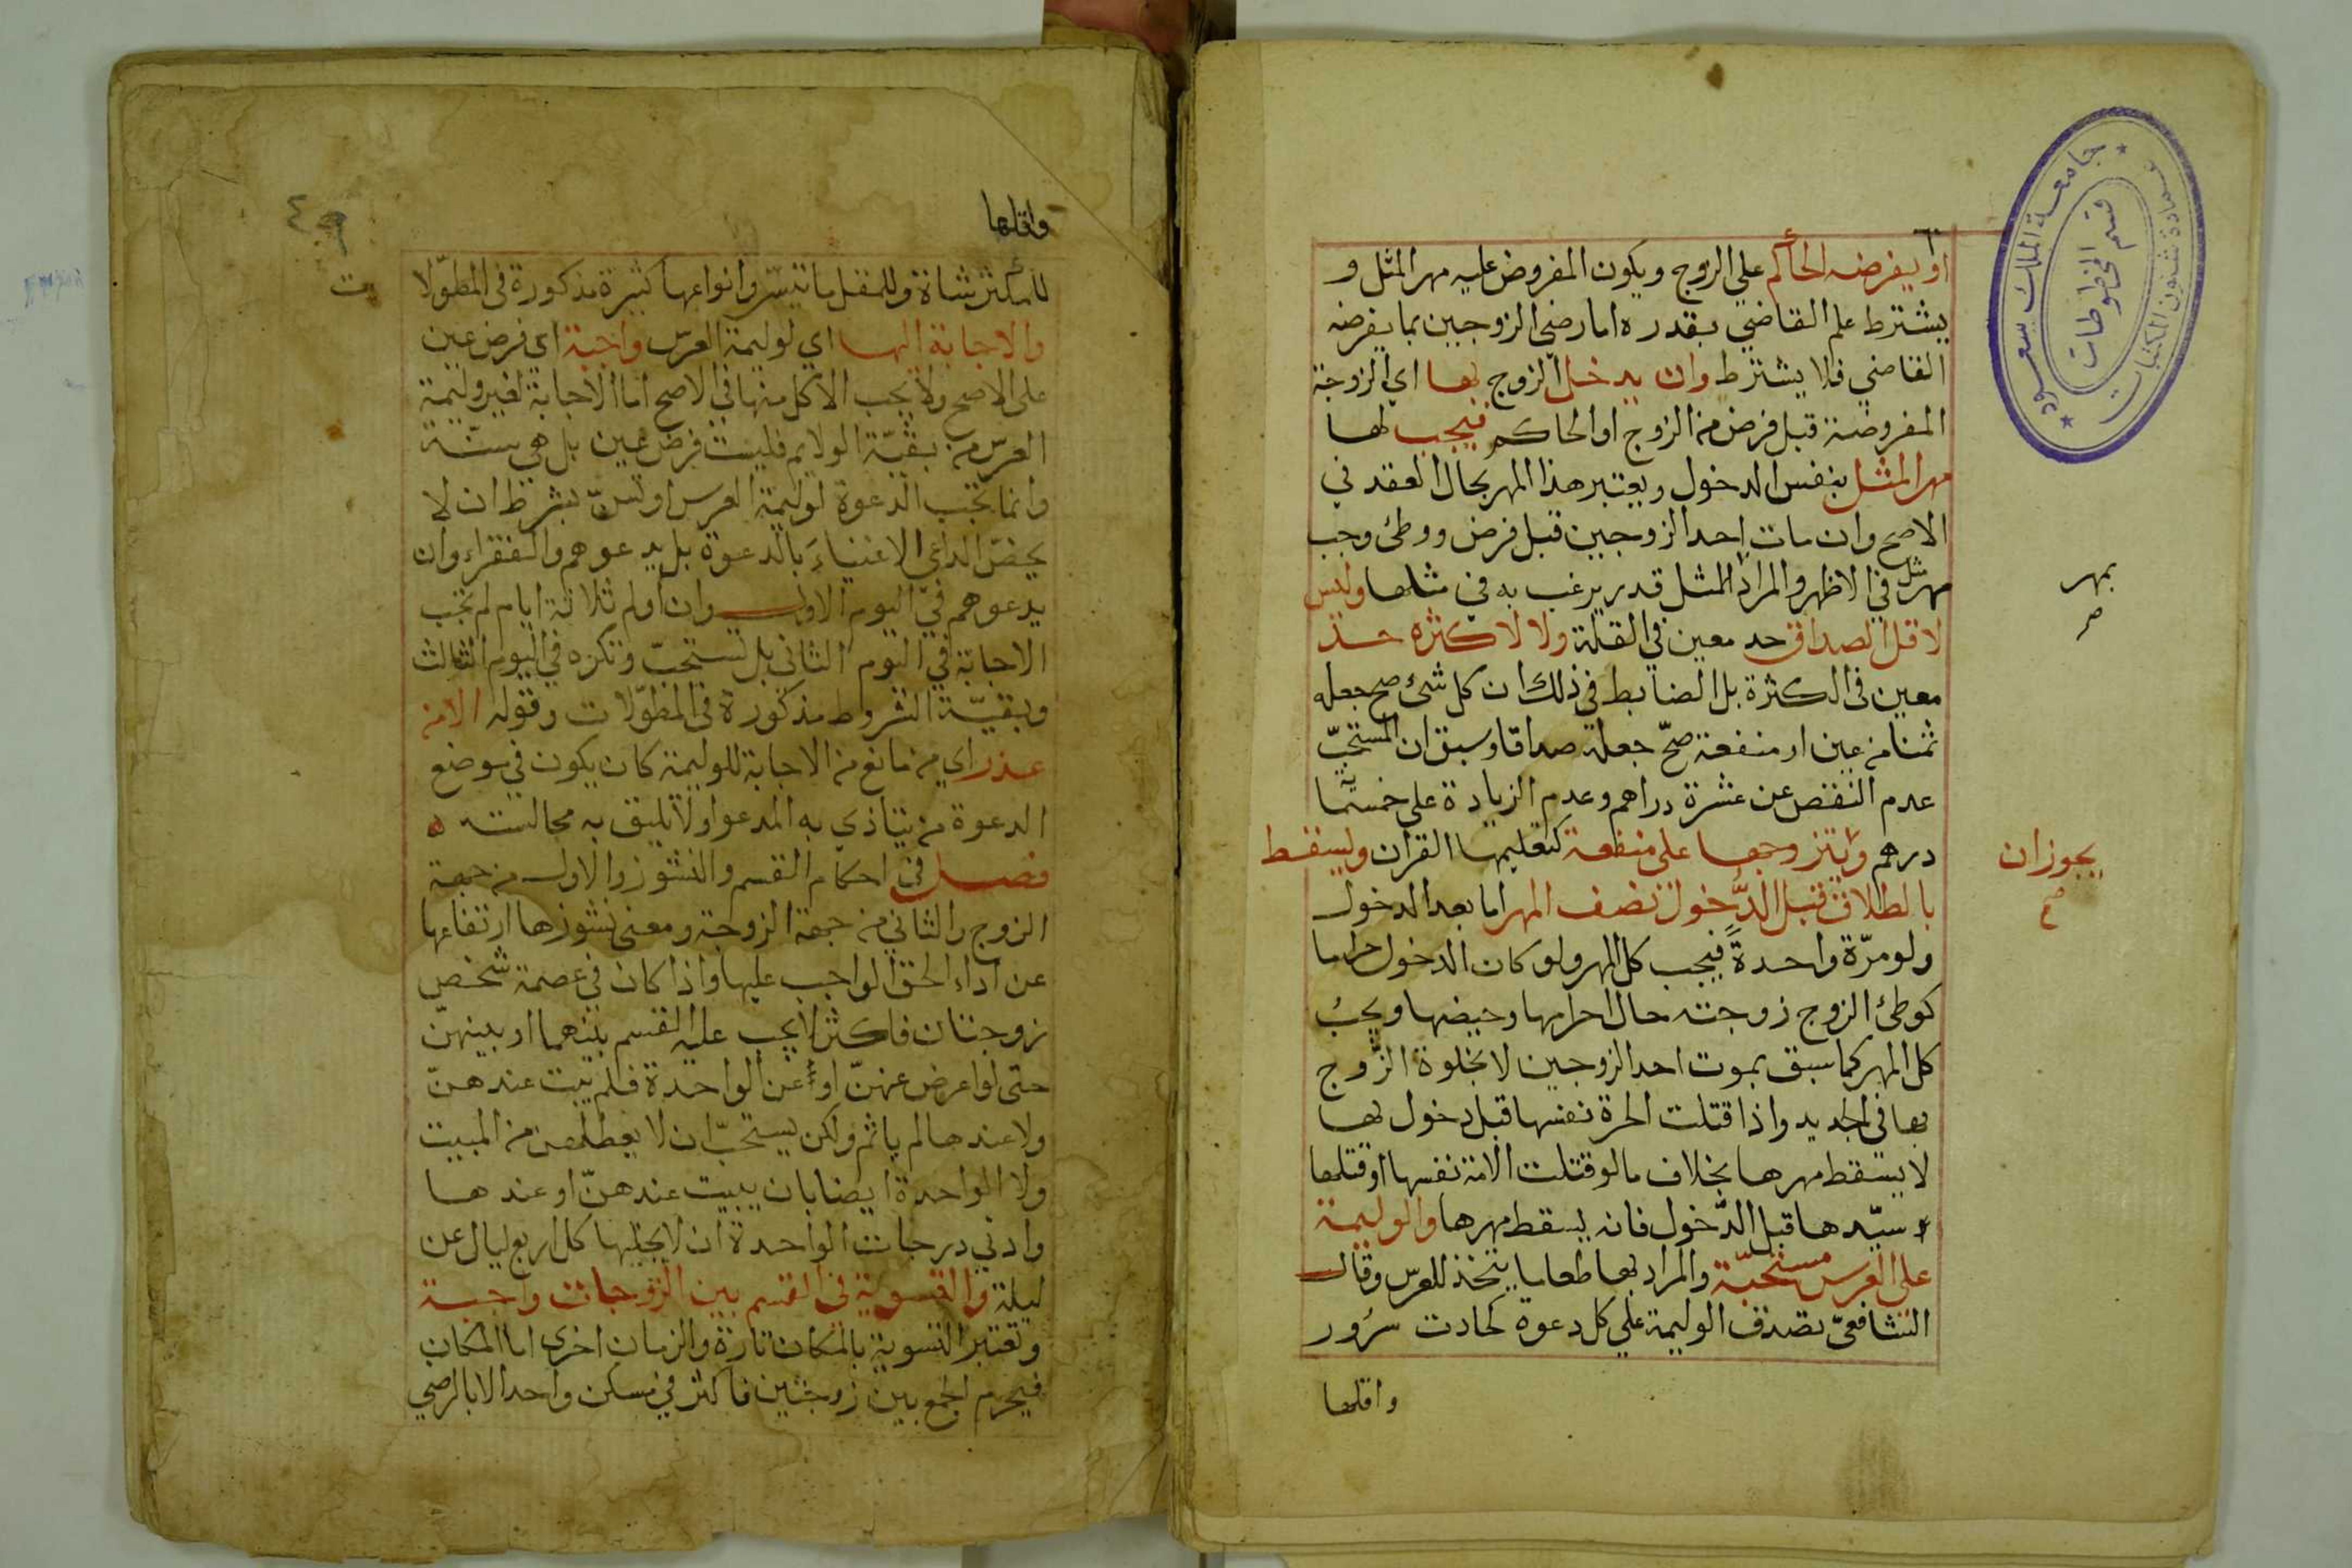 او يفرضه الحاكم على الزوج ويكون المفروض عليه مهر المثل و
يشترط علم القاضي بقدره اما رضى الزوجين بما يفرضه
القاضي فلا يشترط وان يدخل الزوج بها اي الزوجة
المفروضة قبل فرض من الزوج او الحاكم فيجب لها
مهر المثل بنفس الدخول ويعتبر هذا المهر بحال العقد في
الاصح وان مات احد الزوجين قبل فرض ووطئ وجب
مهر مثل في الاظهر والمراد المثل قدر يرغب به في مثلها وليس
بمهر
صح
لاقل الصداق حد معين في القلة ولا لاكثره حد
معين في الكثرة بل الضابط في ذلك ان كل شئ صح جعله
ثمنا من عين او منفعة صحّ جعله صداقا وسبق ان المستحبّ
عدم النقص عن عشرة دراهم وعدم الزيادة على خمسمائة
درهم وان يتزوجها على منفعة كتعليمها القران ويسقط
يجوز ان
صح
بالطلاق قبل الدّخول نصف المهر اما بعد الدخول
ولو مرّة واحدةً فيجب كل المهر ولو كان الدخول حراما
كوطئ الزوج زوجته حال احرامها وحيضها ويجبُ
كل المهر كما سبق بموت احد الزوجين لا بخلوة الزّوج
بها في الجديد واذا قتلت الحرة نفسها قبل دخول لها
لا يسقط مهرها بخلاف ما لو قتلت الامة نفسها او قتلها
سيّدها قبل الدّخول فانه يسقط مهرها والوليمة
على العرس مستحبّة والمراد بها طعاما يتخذ للعرس وقال
الشافعيّ تصدق الوليمة على كل دعوة لحادث سرُور
واقلها
جامعة الملك سعود
عمادة شئون المكتبات
قسم المخطوطات
واقلها
للمكثر شاة وللمقل ما تيسّر وانواعها كثيرة مذكورة في المطوّلا
ت
والاجابة اليها اي لوليمة العرس واجبة اي فرض عين
على الاصح ولا يجب الاكل منها في الاصح اما الاجابة لغير وليمة
العرس من بقيّة الولايم فليست فرض عين بل هي سنّة
وانما تجب الدعوة لوليمة العرس او تسنّ بشرط ان لا
يخصّ الداعي الاغنياءَ بالدعوة بل يدعوهم والفقراء وان
يدعوهم في اليوم الاول وان اولم ثلاثة ايام لم تجب
الاجابة في اليوم الثاني بل تستحبّ وتكره في اليوم الثالث
وبقيّة الشروط مذكورة في المطوّلات وقوله الا من
عذر اي من مانع من الاجابة للوليمة كان يكون في موضع
الدعوة من يتاذي به المدعو اولا يليق به مجالسته ه
فصل في احكام القسم والنشوز والاول من جهة
الزوج والثاني من جهة الزوجة ومعنى نشوزها ارتفاعها
عن اداء الحق الواجب عليها واذا كان في عصمة شخص
زوجتان فاكثر لا يجب عليه القسم بينهما او بينهنّ
حتى لو اعرض عنهنّ او عن الواحدة فلم يبت عندهنّ
ولا عندها لم ياثم ولكن يستحبّ ان لا يعطلهن من المبيت
ولا الواحدة ايضا بان يبيت عندهنّ او عندها
وادني درجات الواحدة ان لا يخليها كل اربع ليال عن
ليلة والتسوية في القسم بين الزوجات واجبة
وتعتبر التسوية بالمكان تارة والزمان اخرى اما المكان
فيحرم الجمع بين زوجتين فاكثر في مسكن واحد الا بالرضى